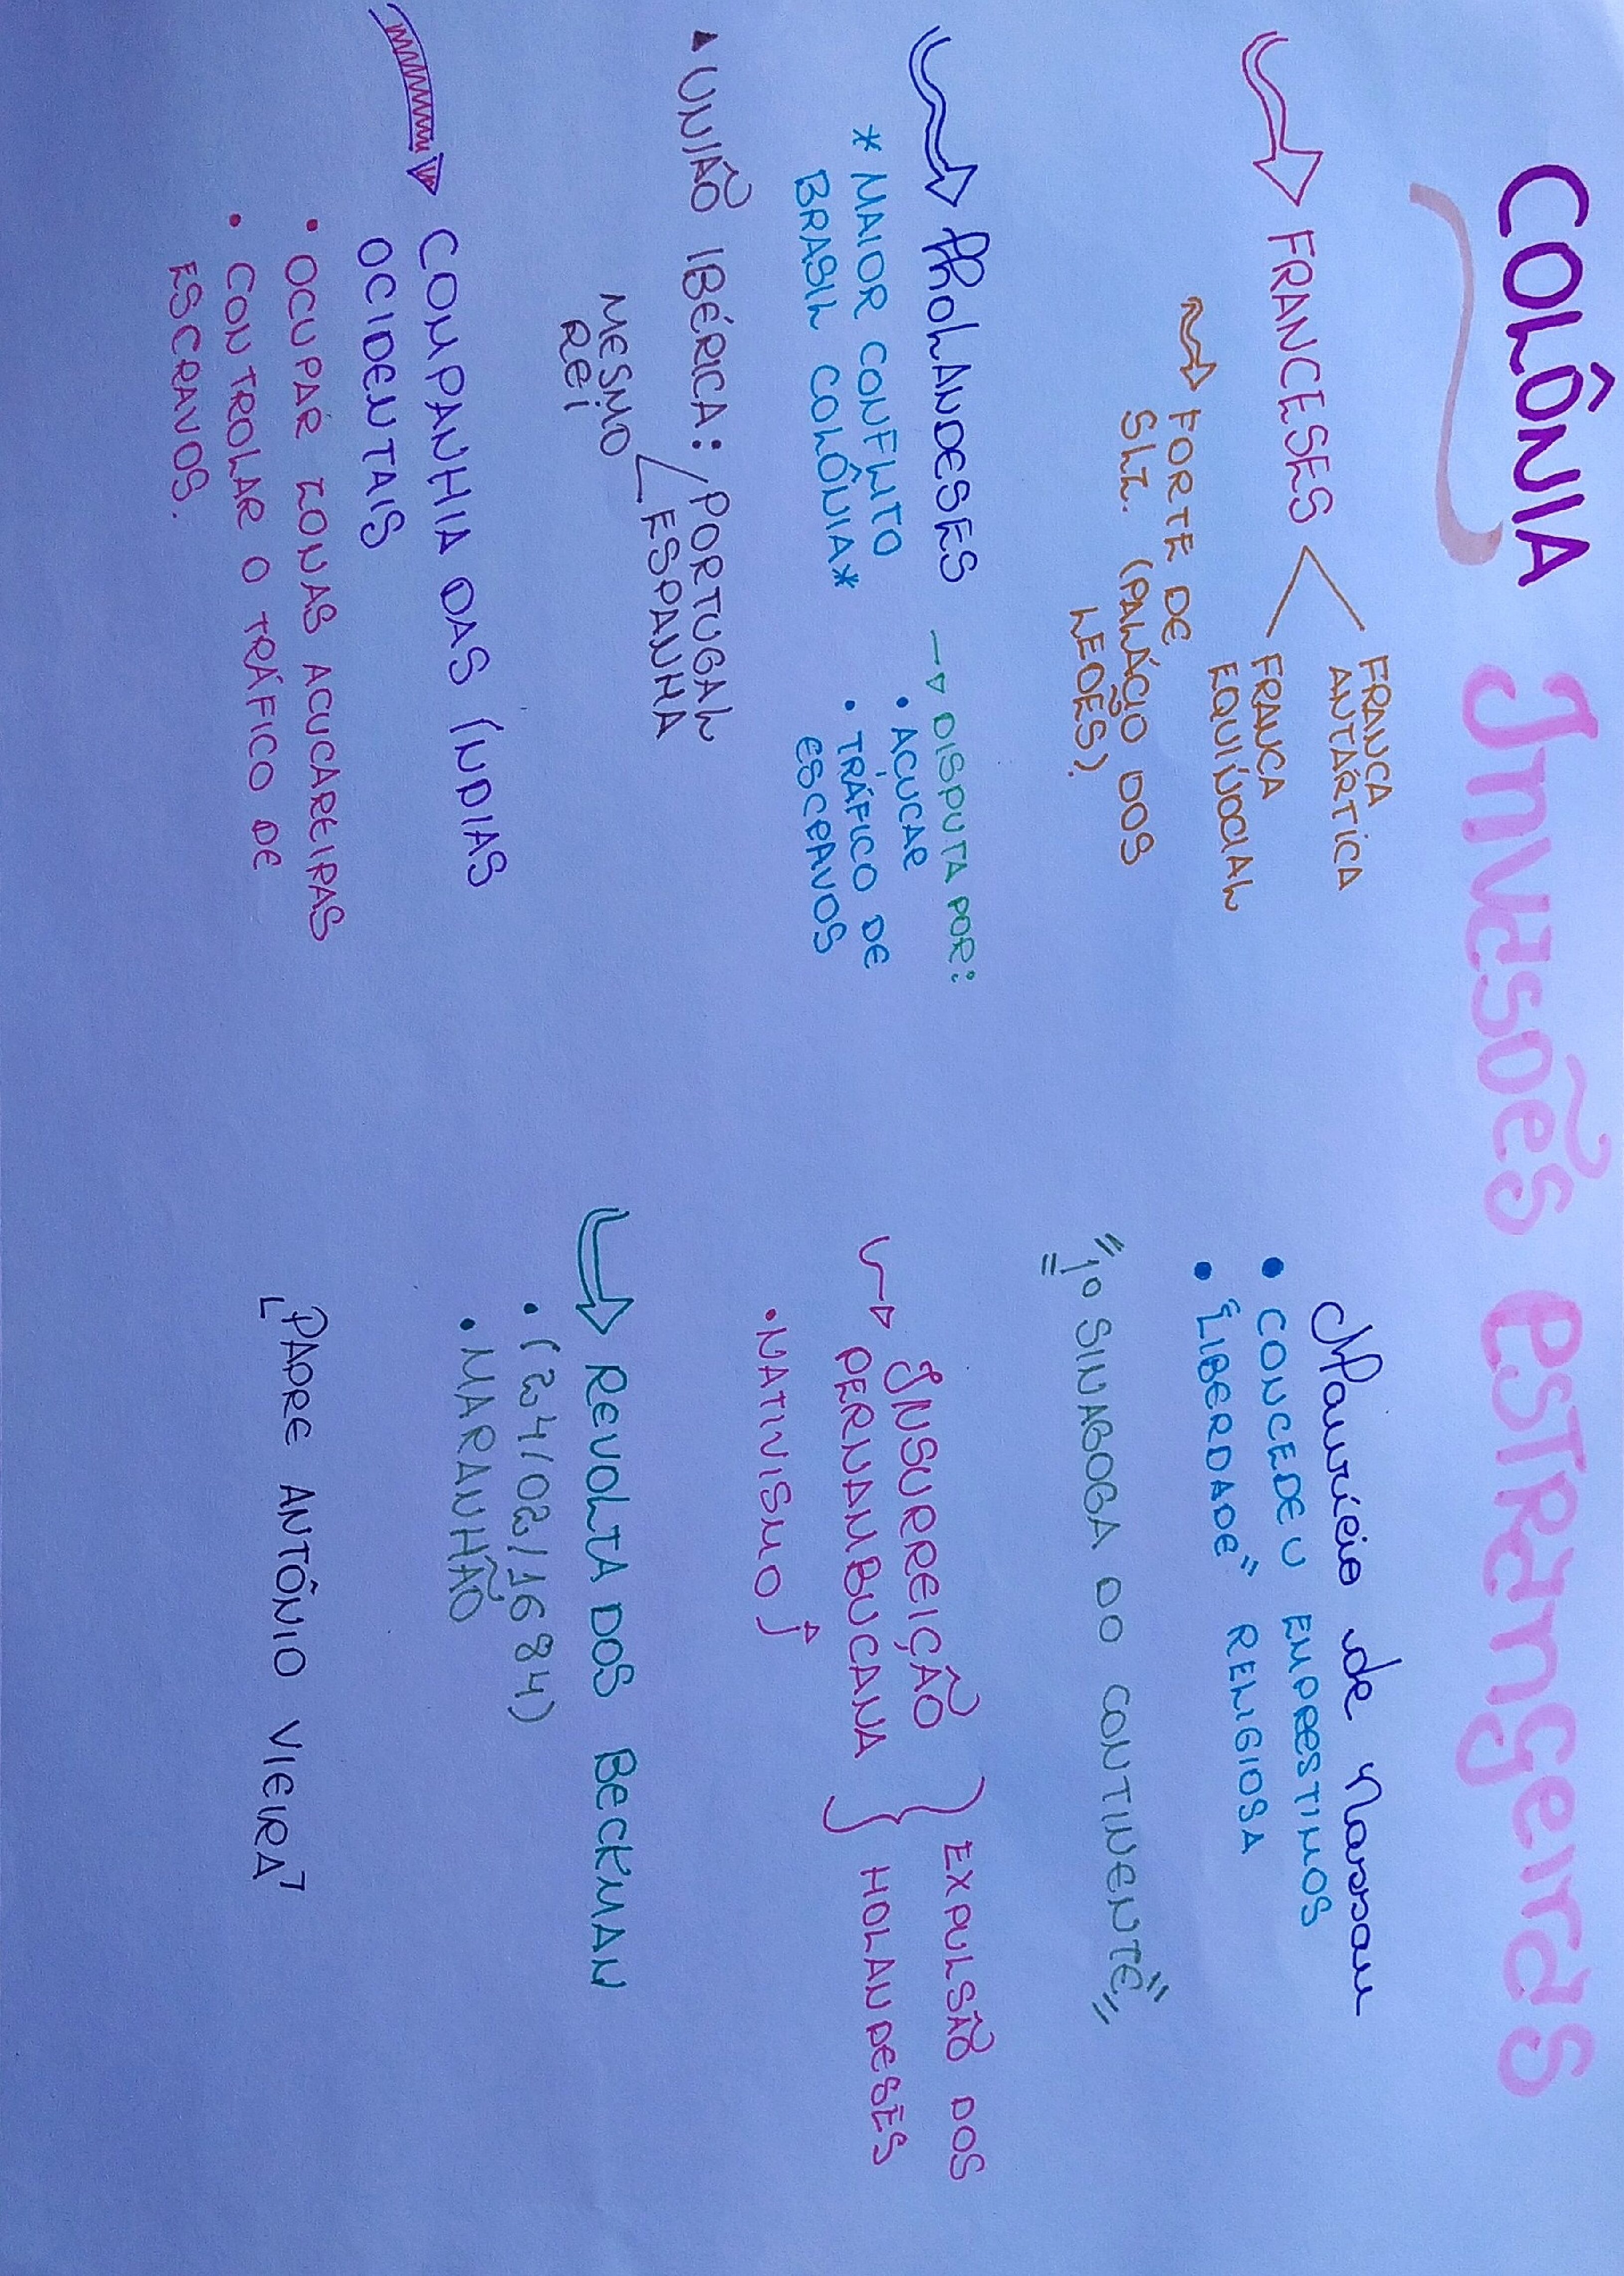 COLÔNIA Invasões estrangeiras
FRANCESES
FRANCA
ANTÁRTICA
FRANCA
EQUINOCIAL
FORTE DE
SLZ. (PALÁCIO DOS
LEÕES).
HOLANDESES
* MAIOR CONFLITO
BRASIL COLÔNIA *
→ DISPUTA POR:
• AÇUCAR
• TRÁFICO DE
ESCRAVOS
UNIÃO IBÉRICA: PORTUGAL
ESPANHA
MESMO
REI
COMPANHIA DAS ÍNDIAS
OCIDENTAIS
• OCUPAR ZONAS ACUCAREIRAS
• CONTROLAR O TRÁFICO DE
ESCRAVOS.
Maurício de Nassau
• CONCEDEU EMPRESTIMOS
• "LIBERDADE" RELIGIOSA
"1º SINAGOGA DO CONTINENTE"
INSURREIÇÃO
PERNAMBUCANA
EXPULSÃO DOS
HOLANDESES
• NATIVISMO
REVOLTA DOS BECKMAN
• (24/02/1684)
• MARANHÃO
PADRE ANTÔNIO VIEIRA